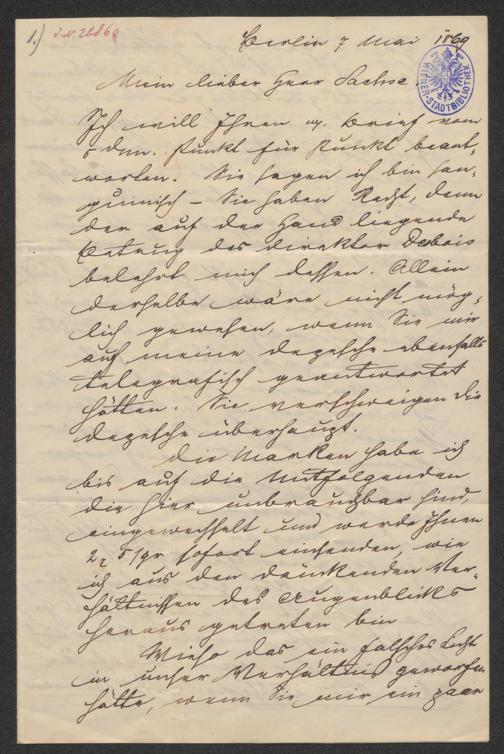 1.) J. N. 26869
Berlin 7 Mai 1869
WIENER-STADTBIBLIOTHEK
Mein lieber Herr Sachse
Ich will Ihnen Brief vom
5 dM. Punkt für Punkt beant-
worten. Sie sagen ich bin san-
guinisch – Sie haben Recht, denn
der auf der Hand liegende
Betrug des Direktor Debois
belehrt mich dessen. Allein
derselbe wäre nicht mög-
lich gewesen, wenn Sie mir
auf meine Depesche ebenfalls
telegrafisch geantwortet
hätten. Sie verschweigen die
Depesche überhaupt.
Die Marken habe ich
bis auf die Mitfolgenden
die hier unbrauchbar sind
eingewechselt und werde Ihnen
sofort einsenden, wie
ich aus den drückenden Ver-
hältnissen des Augenblicks
heraus getreten bin
Wieso das ein falsches Licht
in unser Verhältnis geworfen
hätte, wenn Sie mir ein paar